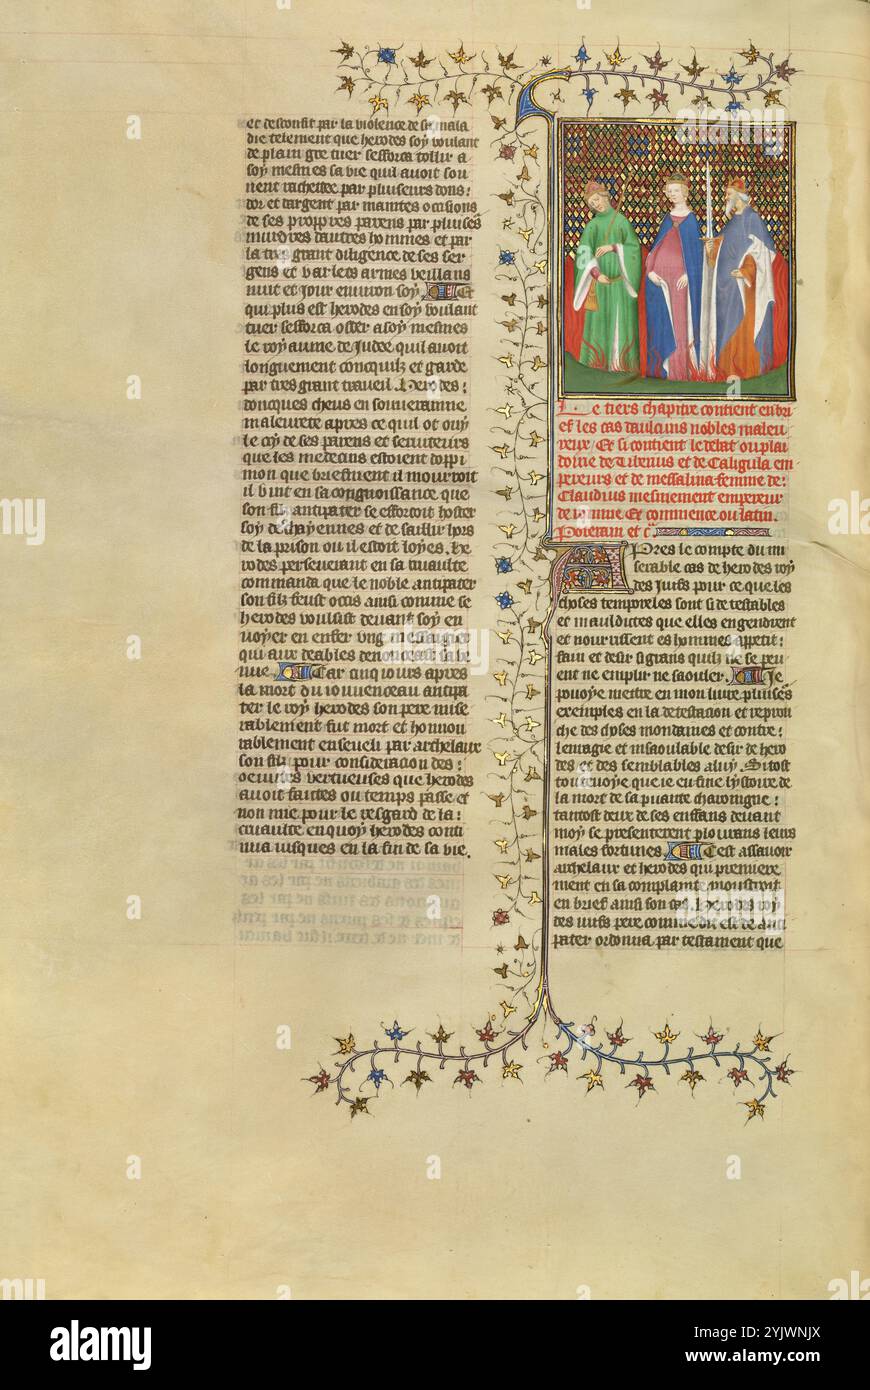 et desconfit par la violence de sa mala
die telement que herodes soy voulant
de plain gre tuer sefforca tollir a
soy mesmes sa vie quil auoit sou
uent rachettee par pluiseurs dons:
dor et dargent par maintes occasions
de ses propres parens par pluiseurs
murdres dautres hommes et par
la tres grant diligence de ses ser
gens et varlets armes veillans
nuit et jour enuiron soy Et
qui plus est herodes en soy voulant
tuer sefforca oster a soy mesmes
le royaume de Judee quil auoit
longuement conequis et garde
par tres grant traueil. Herodes:
doncques cheus en souueraine
maleurete apres ce quil ot ouy
le cry de ses parens et seruiteurs
que les medecins estoient doppi
nion que briefment il mourroit
il vint en sa congnoissance que
son filz antipater se efforcoit hoster
soy de chayennes et de saillir hors
de la prison ou il estoit loyes. he
rodes perseuerant en sa cruaulte
commanda que le noble antipater
son filz feust occis ainsi comme se
herodes voulsist deuant soy en
uoyer en enfer vng messaigier
qui aux deables denoncast sa ve
nue. Car cinq iours apres
la mort du iouuenceau antipa
ter le roy herodes son pere mise
rablement fut mort et honnou
rablement enseueli par archelaus
son filz pour consideracion des:
oeuures vertueuses que herodes
auoit faictes ou temps passe et
non mie pour le resgard de la:
cruaulte en quoy herodes conti
nua iusques en la fin de sa vie.
Le tiers chapitre contient en bri
ef les cas daulcuns nobles maleu
reux Et si contient le debat ou plai
doirie de Tiberius et de Caligula em
pereurs et de messalina femme de:
Claudius mesmement empereur
de romme Et commence ou latin.
Poteram et c.
Apres le compte du mi
serable cas de herodes roy
des Juifs pour ce que les
choses temporeles sont si detestables
et mauldictes que elles engendrent
et nourrissent es hommes appetit:
faim et desir si grans quilz ne se peu
ent ne emplir ne saouler. Je
pouoye mettre en mon liure pluiseurs
exemples en la detestacion et reprou
che des choses mondaines et contre:
lenragie et insaoulable desir de hero
des et des semblables a luy. Si tost
toutenoye que ie eu fine lystoire de
la mort de sa puante charongne:
tantost deux de ses enffans deuant
moy se presenterent plourans leurs
males fortunes Cest assauoir
archelaux et herodes qui premiere
ment en sa complaint moustroit
en brief ainsi son cas. Herodes roy
des iuifs pere comme dit est de anti
pater ordonna par testament que
alamy
Image ID: 2YJWNJX
www.alamy.com